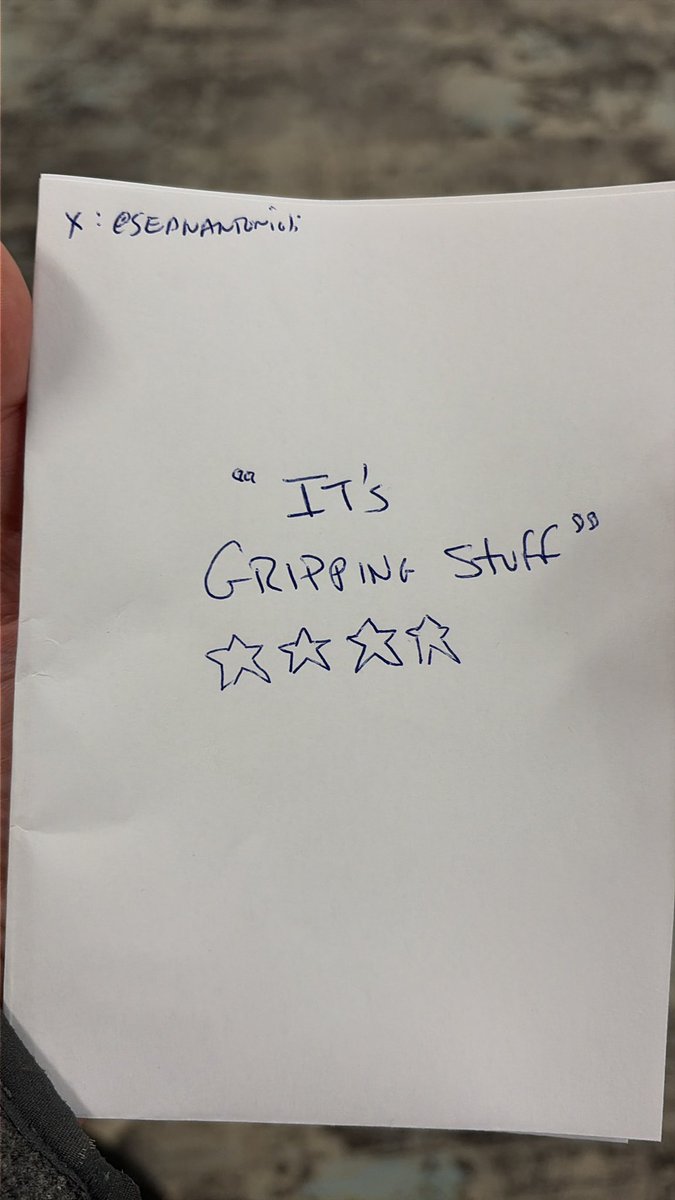 X: @SEANANTONioli
"IT's
GRIPPING Stuff"